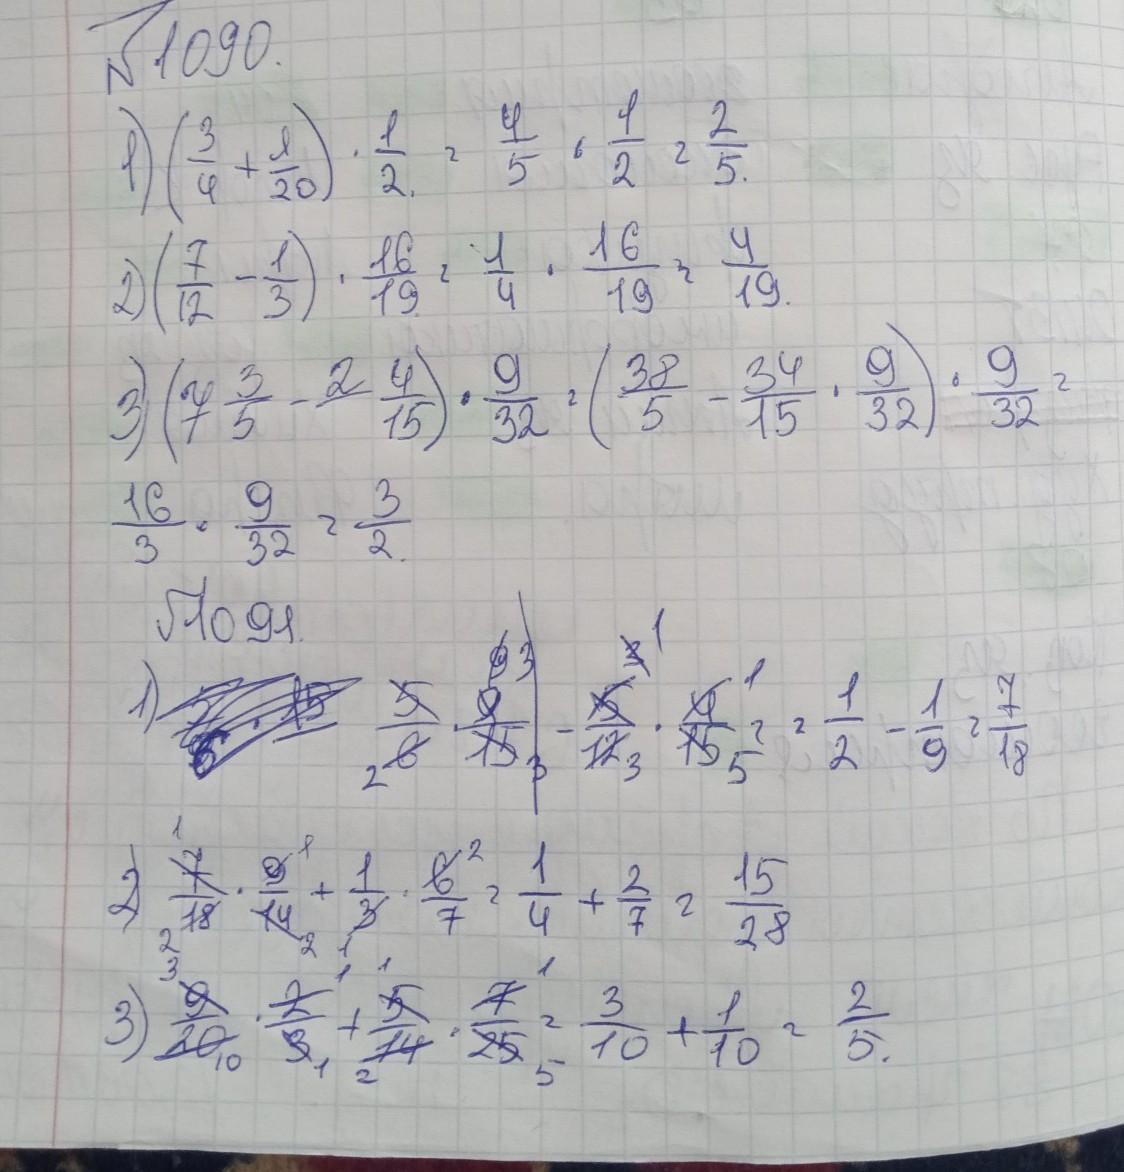 №1090.
1) (3/4 + 1/20) · 1/2 = 4/5 · 1/2 = 2/5.
2) (7/12 - 1/3) · 16/19 = 1/4 · 16/19 = 4/19.
3) (7 3/5 - 2 4/15) · 9/32 = (38/5 - 34/15 · 9/32) · 9/32 =
16/3 · 9/32 = 3/2.
№1091.
1) 5/6 · 9/15 - 5/12 · 4/15 = = 1/2 - 1/9 = 7/18
2) 7/18 · 9/14 + 1/3 · 6/7 = 1/4 + 2/7 = 15/28
3) 9/20 · 2/3 + 5/14 · 7/25 = 3/10 + 1/10 = 2/5.